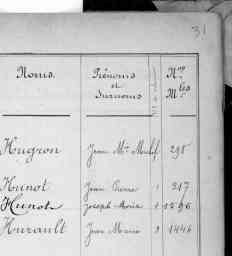 31
Noms. Prénoms et Surnoms Nos Mles
Hugron Jean Mie 298
Hunot Jean Pierre 1 217
Hunot Joseph Marie 1 1596
Hurault Jean Marie 3 1446